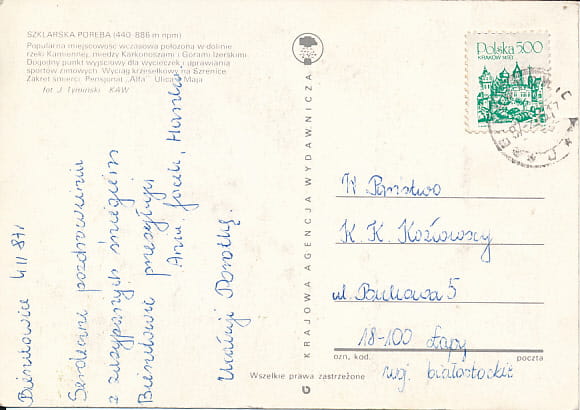 SZKLARSKA PORĘBA (440-886 m npm)
Popularna miejscowość wczasowa położona w dolinie
rzeki Kamiennej, między Karkonoszami i Górami Izerskimi.
Dogodny punkt wyjściowy dla wycieczek i uprawiania
sportów zimowych. Wyciąg krzesełkowy na Szrenicę
Zakręt śmierci. Pensjonat „Alfa". Ulica 1 Maja
fot J. Tymiński KAW
Polska 5.00
KRAKÓW
KRAJOWA AGENCJA WYDAWNICZA
Serdeczne pozdrowienia
z zasypanych śniegiem
przesyłają
Anna, Jacek, Hania
Ucałuj Dorotkę.
W Państwo
K. K. Kozłowscy
ul. Bukowa 5
18-100 Łapy
ozn, kod. poczta
woj. białostockie
Wszelkie prawa zastrzeżone